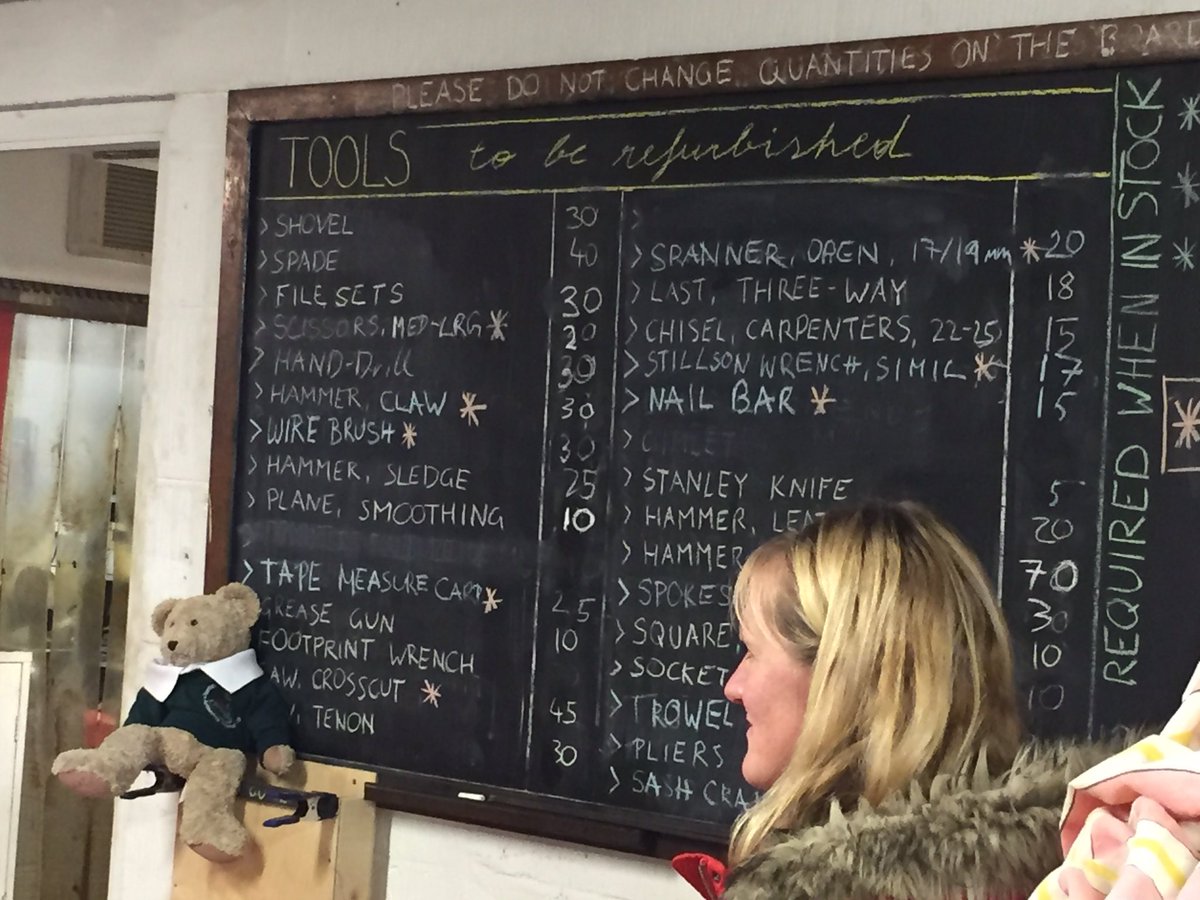 PLEASE DO NOT CHANGE QUANTITIES ON THE BOARD
TOOLS to be refurbished
> SHOVEL 30
> SPADE 40
> FILE SETS 30
> SCISSORS, MED-LRG * 20
> HAND-Drill 30
> HAMMER, CLAW * 30
> WIRE BRUSH * 30
> HAMMER, SLEDGE 25
> PLANE, SMOOTHING 10
> TAPE MEASURE CARP * 25
GREASE GUN 10
FOOTPRINT WRENCH
AW, CROSSCUT * 45
TENON 30
>
> SPANNER, OPEN, 17/19mm * 20
> LAST, THREE-WAY 18
> CHISEL, CARPENTERS, 22-25 15
> STILLSON WRENCH, SIMIL * 17
> NAIL BAR * 15
>
> STANLEY KNIFE 5
> HAMMER, 20
> HAMMER 70
> SPOKES 30
> SQUARE, 10
> SOCKET 10
> TROWEL
> PLIERS
> SASH CRA
REQUIRED WHEN IN STOCK
*
*
*
*